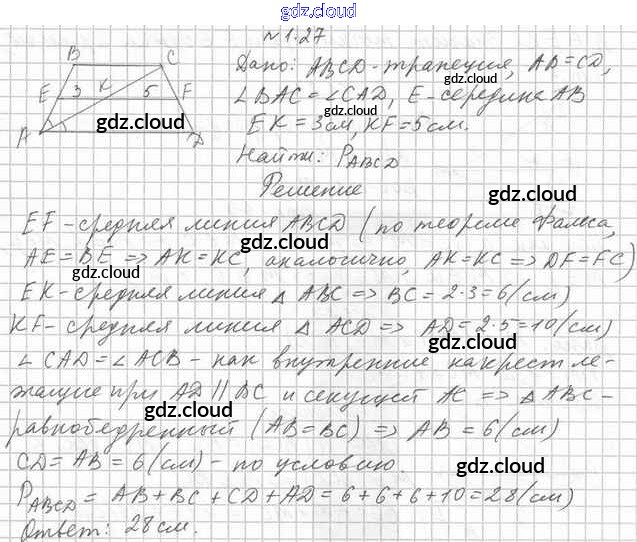 gdz.cloud
№ 1.27
B C
E 3 K 5 F
A D
gdz.cloud
Дано: ABCD - трапеция, AB = CD,
∠BAC = ∠CAD, E - середина AB
gdz.cloud
EK = 3 см, KF = 5 см.
gdz.cloud
Найти: P_ABCD
Решение
gdz.cloud
EF - средняя линия ABCD (по теореме Фалеса,
gdz.cloud
AE = BE => AK = KC, аналогично, AK = KC => DF = FC)
gdz.cloud
EK - средняя линия △ ABC => BC = 2·3 = 6 (см)
KF - средняя линия △ ACD => AD = 2·5 = 10 (см)
gdz.cloud
∠CAD = ∠ACB - как внутренние накрест ле-
жащие при AD || BC и секущей AC => △ ABC -
gdz.cloud
gdz.cloud
равнобедренный (AB = BC) => AB = 6 (см)
gdz.cloud
CD = AB = 6 (см) - по условию.
gdz.cloud
P_ABCD = AB + BC + CD + AD = 6 + 6 + 6 + 10 = 28 (см)
gdz.cloud
Ответ: 28 см.
gdz.cloud